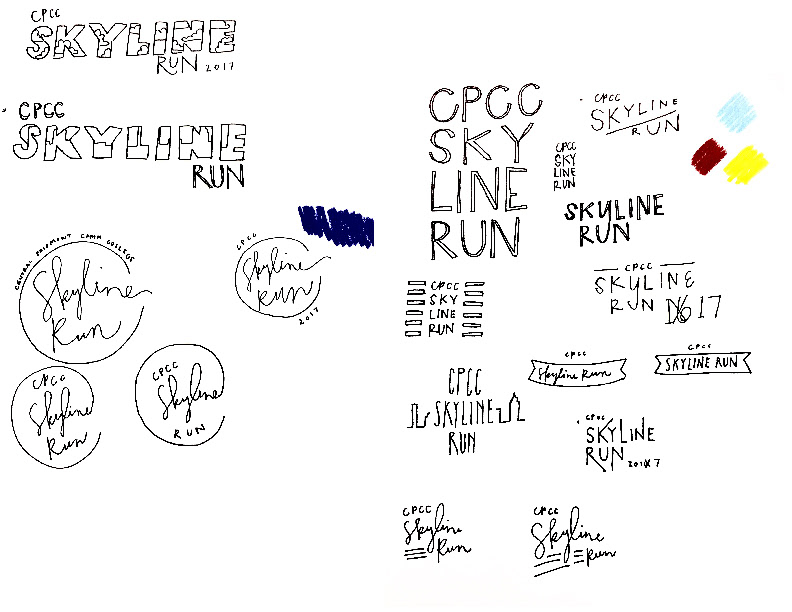 CPCC
SKYLINE
RUN 2017
CPCC
SKYLINE
RUN
CENTRAL PIEDMONT COMM COLLEGE
Skyline
Run
CPCC
Skyline
Run
2017
CPCC
Skyline
Run
CPCC
Skyline
RUN
CPCC
SKY
LINE
RUN
CPCC
SKYLINE
RUN
CPCC
SKY
LINE
RUN
SKYLINE
RUN
CPCC
SKY
LINE
RUN
CPCC
SKYLINE
RUN 17
CPCC
SKYLINE
RUN
CPCC
Skyline Run
CPCC
SKYLINE RUN
CPCC
SKYLINE
RUN
CPCC
Skyline
Run
CPCC
Skyline
Run